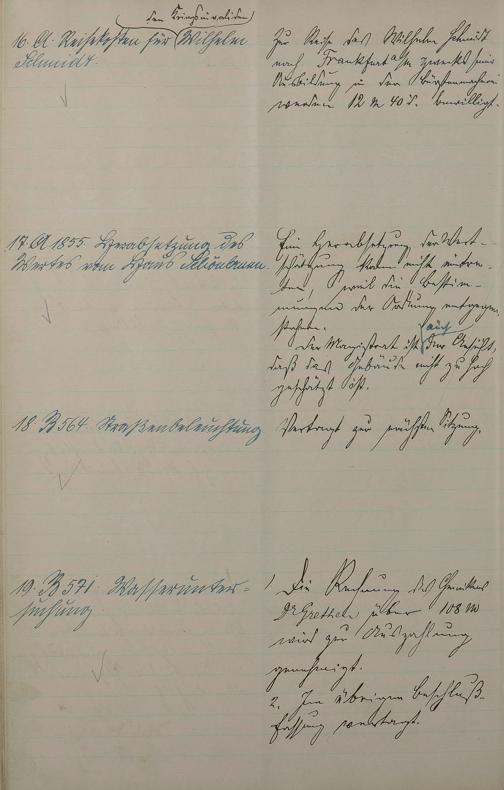 den Kriegsinvaliden
16. A. Reisekosten für Wilhelm
Schmidt.
Zur Reise des Wilhelm Schmidt
nach Frankfurt a/M zwecks seiner
Ausbildung in der Bürstenmacherei
werden 12 M 40 d. bewilligt.
17. A 1855. Herabsetzung des
Wertes vom Haus Schönlanen.
Eine Herabsetzung der Wert-
schätzung kann nicht eintre-
ten, weil die Bestim-
mungen der Ordnung entgegen
stehen.
auch
Der Magistrat ist der Ansicht,
daß das Gebäude nicht zu hoch
geschätzt ist.
18 B 564. Straßenbeleuchtung
Vertagt zur nächsten Sitzung.
19. B 571. Wasserunter-
suchung
1 Die Rechnung des Chemikers
Dr über 108 M
wird zur Auszahlung
genehmigt.
2. Im übrigen Beschluß-
fassung vertagt.